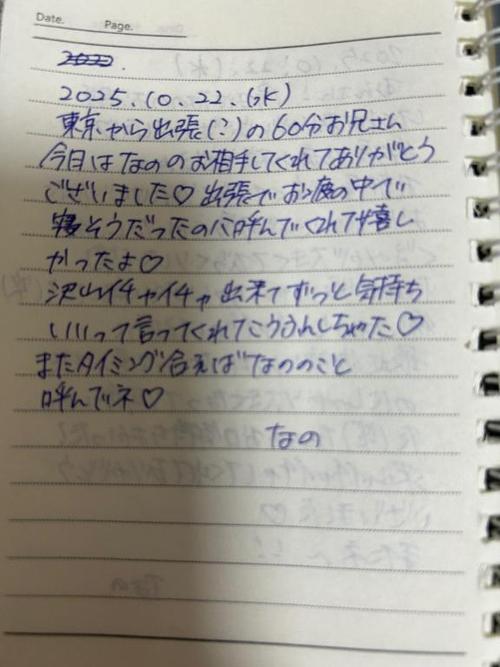 Date. Page.
2025.10.22.(水)
東京から出張(?)の60分お兄さん
今日はなののお相手してくれてありがとう
ございました♡ 出張でお疲の中で
寝そうだったのに呼んでくれて嬉し
かったよ♡
沢山イチャイチャ出来てずっと気持ち
いいって言ってくれてこうふんしちゃった♡
またタイミング合えばなののこと
呼んでネ♡
なの